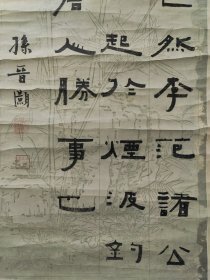 已然李范諸公
起於煙波釣
居人勝事也
孫晉灝